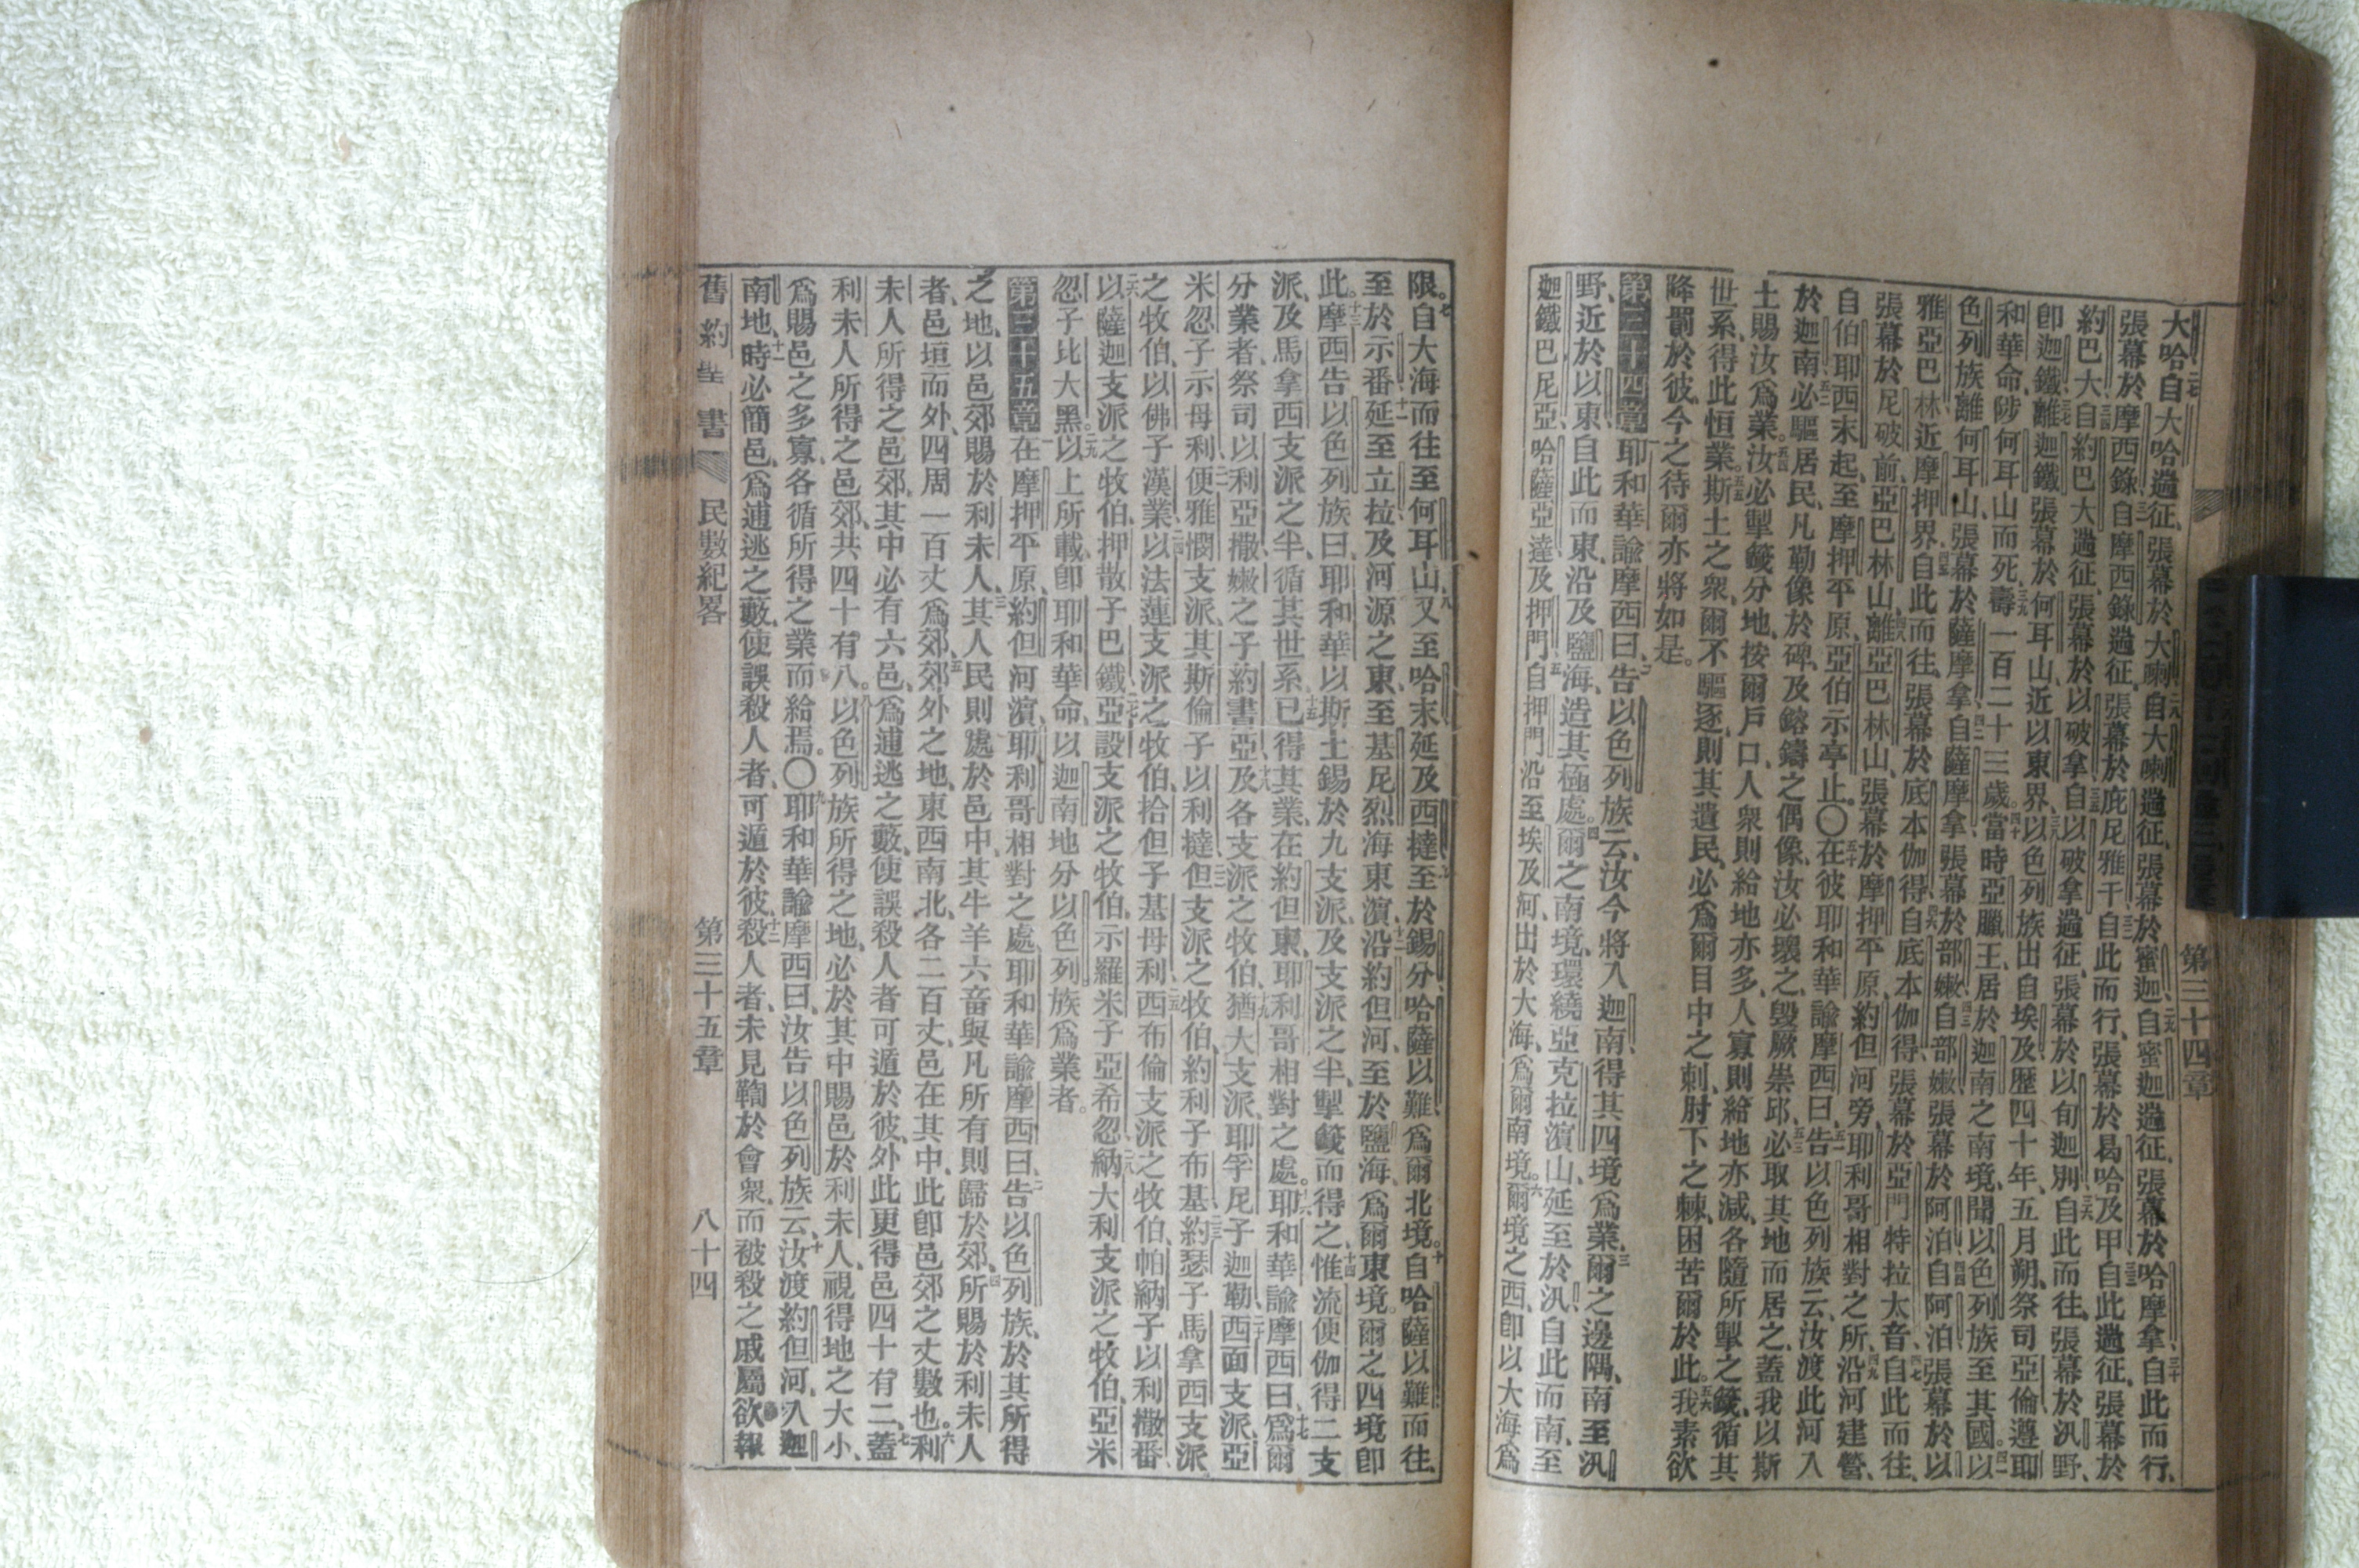 第三十四章
大哈自大哈遄征、張幕於大喇、自大喇遄征、張幕於蜜迦、自蜜迦遄征、張幕於哈摩拿、自此而行、
張幕於摩西錄、自摩西錄遄征、張幕於庇尼雅干、自此而行、張幕於曷哈及甲、自此遄征、張幕於
約巴大、自約巴大遄征、張幕於以破拿、自以破拿遄征、張幕於以旬迦別、自此而往、張幕於汎野、
卽迦鐵、離迦鐵、張幕於何耳山、近以東界、以色列族出自埃及、歷四十年、五月朔、祭司亞倫遵耶
和華命、陟何耳山而死、壽一百二十三歲。當時亞臘王、居於迦南之南境、聞以色列族至其國。以
色列族離何耳山、張幕於薩摩拿、自薩摩拿、張幕於部嫩、自部嫩、張幕於阿泊、自阿泊、張幕於以
雅亞巴林、近摩押界、自此而往、張幕於底本伽得、自底本伽得、張幕於亞門特拉太音、自此而往、
張幕於尼破前、亞巴林山、離亞巴林山、張幕於摩押平原、約但河旁、耶利哥相對之所、沿河建營、
自伯耶西末起、至摩押平原、亞伯示亭止。〇在彼耶和華諭摩西曰、告以色列族云、汝渡此河入
於迦南、必驅居民、凡勒像於碑、及鎔鑄之偶像、汝必壞之、毀厥崇邱、必取其地而居之、蓋我以斯
土賜汝爲業。汝必掣籤分地、按爾戶口、人衆則給地亦多、人寡則給地亦減、各隨所掣之籤、循其
世系、得此恒業。斯土之衆、爾不驅逐、則其遺民、必爲爾目中之刺、肘下之棘、困苦爾於此。我素欲
降罰於彼、今之待爾亦將如是。
第三十四章 耶和華諭摩西曰、告以色列族云、汝今將入迦南、得其四境爲業、爾之邊隅、南至汎
野、近於以東、自此而東、沿及鹽海、造其極處。爾之南境、環繞亞克拉濱山、延至於汎、自此而南、至
迦鐵巴尼亞、哈薩亞達及押門、自押門沿至埃及河、出於大海、爲爾南境。爾境之西、卽以大海爲
限。自大海而往、至何耳山、又至哈末、延及西撻、至於錫分、哈薩以難、爲爾北境。自哈薩以難而往、
至於示番、延至立拉及河源之東、至基尼烈海東濱、沿約但河、至於鹽海、爲爾東境。爾之四境卽
此。摩西告以色列族曰、耶和華以斯土錫於九支派、及支派之半、掣籤而得之、惟流便伽得二支
派、及馬拿西支派之半、循其世系、已得其業、在約但東、耶利哥相對之處。耶和華諭摩西曰、爲爾
分業者、祭司以利亞撒、嫩之子約書亞、及各支派之牧伯、猶大支派、耶孚尼子迦勒、西面支派、亞
米忽子示母利、便雅憫支派、其斯倫子以利撻、但支派之牧伯、約利子布基、約瑟子馬拿西支派
之牧伯、以佛子漢業、以法蓮支派之牧伯、拾但子基母利、西布倫支派之牧伯、帕納子以利撒番、
以薩迦支派之牧伯、押散子巴鐵、亞設支派之牧伯、示羅米子亞希忽、納大利支派之牧伯、亞米
忽子比大黑。以上所載、卽耶和華命、以迦南地分以色列族爲業者。
第三十五章 在摩押平原、約但河濱、耶利哥相對之處、耶和華諭摩西曰、告以色列族、於其所得
之地、以邑郊賜於利未人、其人民則處於邑中、其牛羊六畜與凡所有則歸於郊、所賜於利未人
者、邑垣而外、四周一百丈爲郊、郊外之地、東西南北、各二百丈、邑在其中、此卽邑郊之丈數也。利
未人所得之邑郊、其中必有六邑、爲逋逃之藪、使誤殺人者可遁於彼、外此更得邑四十有二、蓋
利未人所得之邑郊、共四十有八。以色列族所得之地、必於其中賜邑於利未人、視得地之大小、
爲賜邑之多寡、各循所得之業而給焉。〇耶和華諭摩西曰、汝告以色列族云、汝渡約但河、入迦
南地、時必簡邑、爲逋逃之藪、使誤殺人者、可遁於彼、殺人者、未見鞫於會衆、而被殺之戚屬欲報
舊約聖書 民數紀畧 第三十五章 八十四